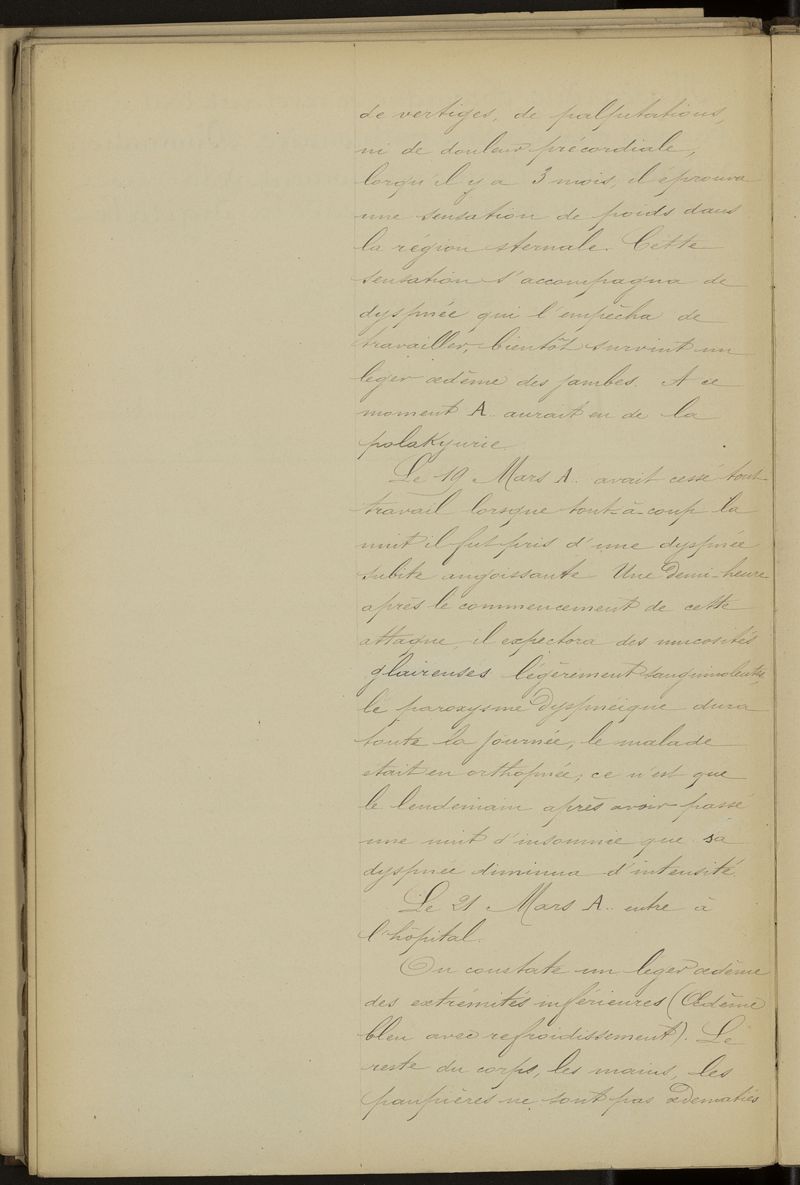 de vertiges, de palpitations,
ni de douleur précordiale,
lorsqu'il y a 3 mois, il éprouva
une sensation de poids dans
la région sternale. Cette
sensation s'accompagna de
dyspnée qui l'empêcha de
travailler, bientôt survint un
léger œdème des jambes. A ce
moment A.. aurait eu de la
polakyurie
Le 19 Mars A.. avait cessé tout
travail lorsque tout-à-coup la
nuit il fut pris d'une dyspnée
subite angoissante Une demi-heure
après le commencement de cette
attaque, il expectora des mucosités
glaireuses légèrement sanguinolentes,
le paroxysme dyspnéique dura
toute la journée, le malade
était en orthopnée; ce n'est que
le lendemain après avoir passé
une nuit d'insomnie que sa
dyspnée diminua d'intensité.
Le 21 Mars A.. entre à
l'hôpital.
On constate un leger œdème
des extrémités inférieures (Œdème
bleu avec refroidissement). Le
reste du corps, les mains, les
paupières ne sont pas œdematiés